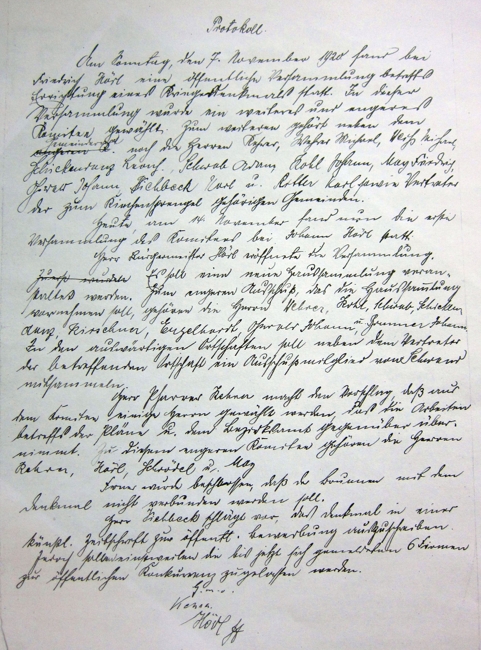 Protokoll.
Am Sonntag, den 7. November 1920 fand bei
Friedrich Hödl eine öffentliche Versammlung betreffs
Errichtung eines Kriegerdenkmals statt. In dieser
Versammlung wurde ein weiteres und engeres
Komitee gewählt. Zum weiteren gehört neben dem
Gemeinderat
noch die Herren Weser Michael,
Schlückenanz Leonh., Schwab Adam, Kohl Johann, May
Johann, Dielbeck Karl u. Rotter Karl sowie Vertreter
der zum Kirchensprengel gehörigen Gemeinden.
Heute, am 14. November fand nun die erste
Versammlung des Komitees bei Johann Hödl statt.
Herr Bürgermeister Hödl eröffnete die Versammlung.
Es soll eine neue Haussammlung veran-
staltet werden. Dem engeren Ausschuß, das die Haussammlung
vornehmen soll, gehören die Herrn Weber, Kohl, Schwab,
Kirschner, Engelhardt, Johann u. Johann
In den auswärtigen Ortschaften soll neben dem Vertreter
der betreffenden Ortschaft ein Ausschußmitglied vom
mitsammeln.
Herr Pfarrer macht den Vorschlag, daß aus
dem Komitee einige Herrn gewählt werden, das die Arbeiten
betreffs der Pläne u. dem Bezirksamt gegenüber über-
nimmt. Zu diesem engeren Komitee gehören die Herren
Hödl, Schrödel u. May
Ferner wurde beschlossen, daß der Brunnen mit dem
Denkmal nicht verbunden werden soll.
Herr Dielbeck schlägt vor, das Denkmal in einer
künstl. Zeitschrift zur öffentl. Bewerbung auszuschreiben.
Jedoch sollen einstweilen die bis jetzt sich gemeldeten 6 Firmen
zur öffentlichen Konkurenz zugelassen werden.
Hödl